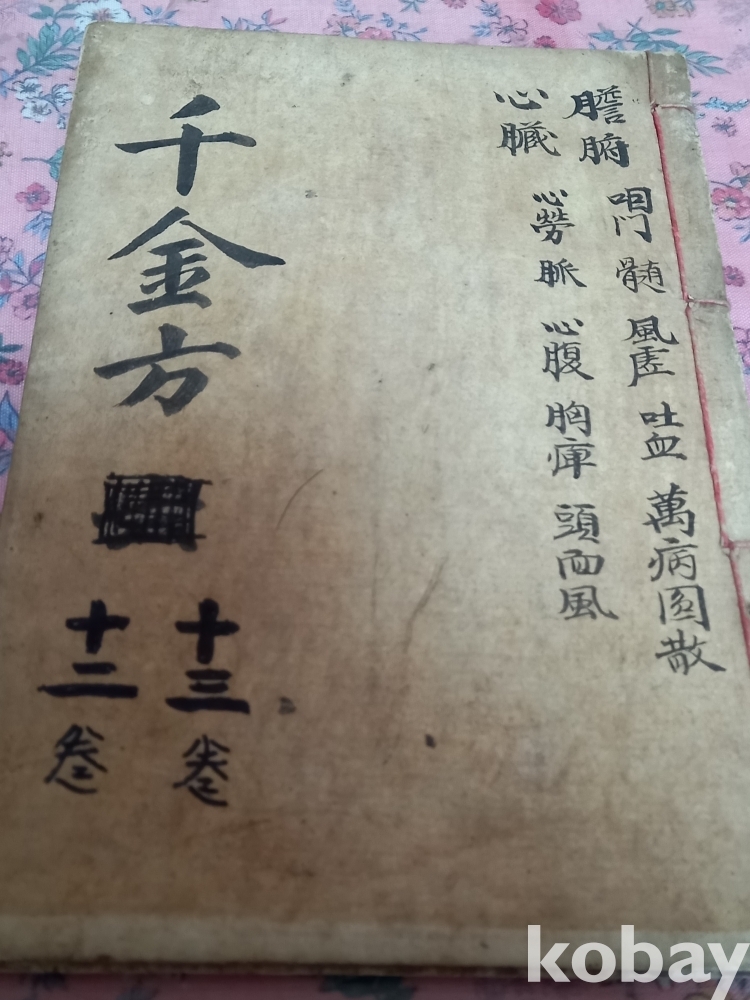 膽腑
咽門 髄 風虛 吐血 萬病圓散
心臟
心勞 脈 心腹 胸痺 頭面風
千金方
十三卷
十二卷
kobay